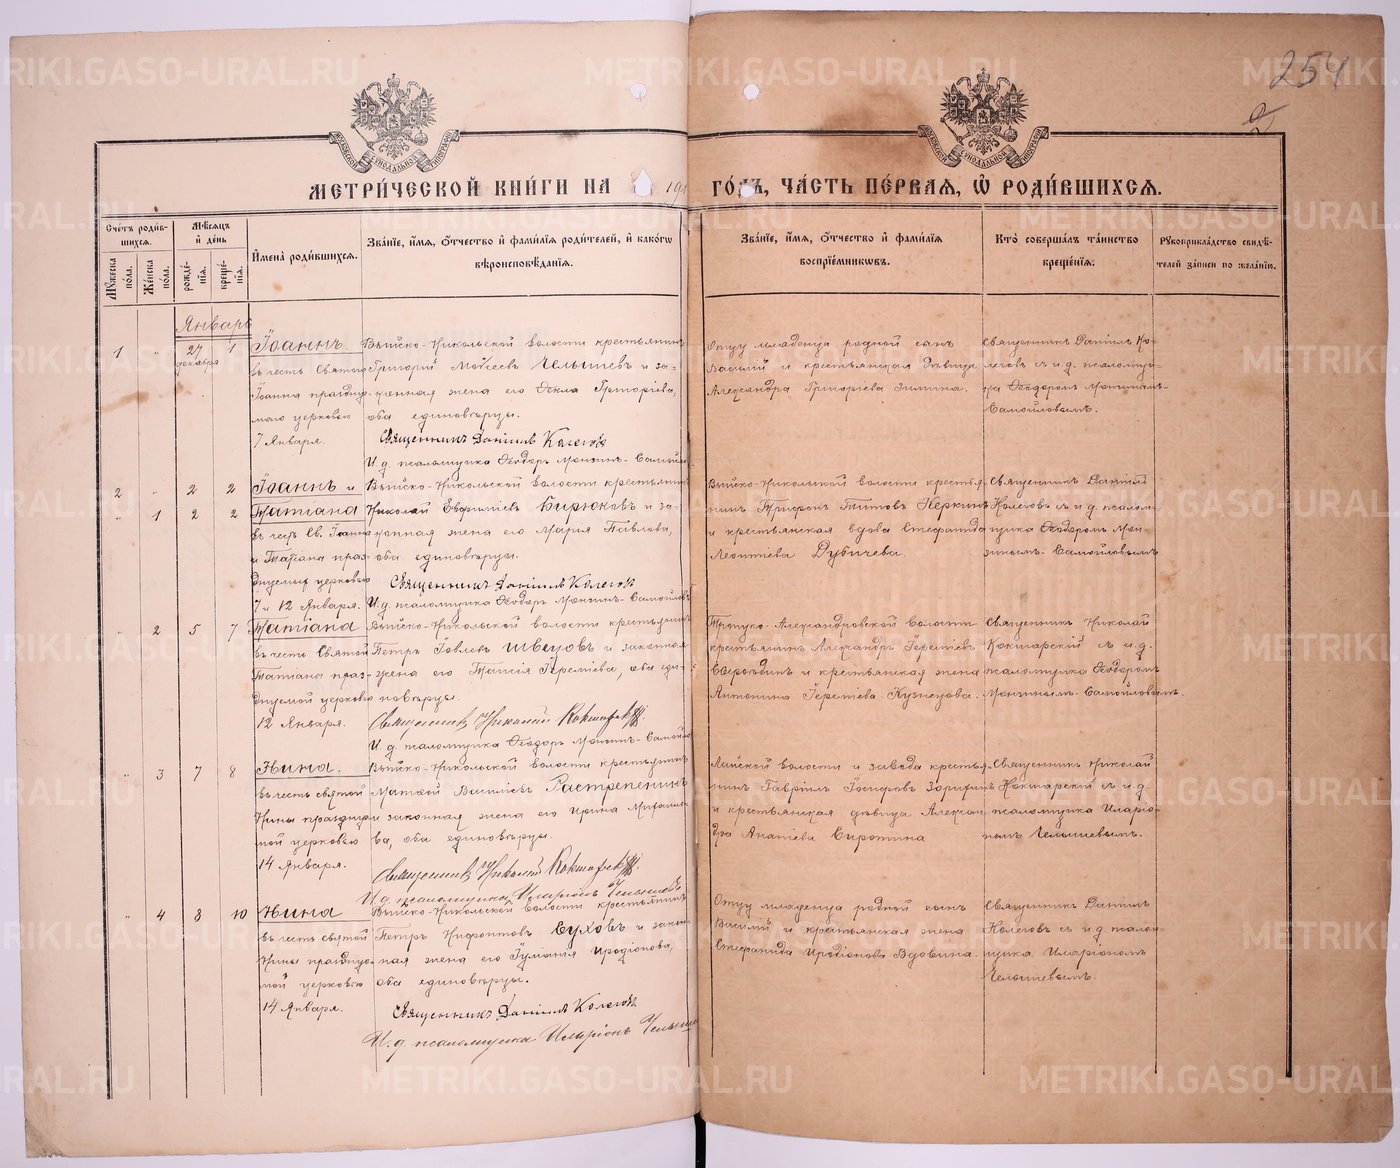 254
МЕТРИ́ЧЕСКОЙ КНИ́ГИ НА 191 ГО́ДЪ, ЧА́СТЬ ПЕ́РВАЯ, Ѽ РОДИ́ВШИХСЯ.
Сче́тъ роди́в-
шихся.
Му́жеска по́ла.
Же́нска по́ла.
Мѣ́сяцъ
и́ де́нь
рожде́-
нїя.
креще́-
нїя.
И҆мена̀ роди́вшихся.
Зва́нїе, и҆́мя, ѻ҆́тчество и҆ фами́лїя роди́телей, и҆ како́гѡ
вѣроисповѣ́данїя.
Зва́нїе, и҆́мя, ѻ҆́тчество и҆ фами́лїя
воспрїе́мникѡвъ.
Кто̀ соверша́лъ та́инство
креще́нїя.
Рукоприкла́дство свидѣ́-
телей за́писи по жела́нїю.
Январь
1 " 27 1
декабря
Іоаннъ.
въ честь Святаго
Іоанна праздну-
маго церковью
7 Января.
Выйско-Никольской волости крестьянинъ
Григорій Моѵсеевъ Челышевъ и за-
конная жена его Ѳекла Григоріева,
оба единовѣрцы.
Священникъ Даніилъ Колеговъ
И. д. псаломщика Ѳеодоръ Мокинъ-Самойловъ
Отцу младенца родной сынъ
Василій и крестьянская дѣвица
Александра Григорьева Зимина.
Священникъ Даніилъ Ко-
леговъ съ и. д. псаломщи-
ка Ѳеодоромъ Мокинымъ-
Самойловымъ.
2 " 2 2
" 1 2 2
Іоаннъ и
Татіана
въ честь Св. Іоанна
и Татіаны праз-
днуемых церковью
7 и 12 Января.
Выйско-Никольской волости крестьянинъ
Николай Евфиміевъ Бирюковъ и за-
конная жена его Марія Павлова,
оба единовѣрцы.
Священникъ Даніилъ Колеговъ
И. д. псаломщика Ѳеодоръ Мокинъ-Самойловъ
Выйско-Никольской волости крестья-
нинъ Трифонъ Титовъ Черкинъ
и крестьянская вдова Стефанида
Леонтіева Дубичева.
Священникъ Даніилъ
Колеговъ съ и. д. псалом-
щика Ѳеодоромъ Мок-
инымъ-Самойловымъ
" 2 5 7
Татіана
въ честь Святой
Татіаны праз-
днуемой церковью
12 Января.
Выйско-Никольской волости крестьянинъ
Петръ Іовлевъ Швецовъ и законная
жена его Таисія Іереміева, оба еди-
новѣрцы.
Священникъ Николай Кокшарскій
И. д. псаломщика Ѳеодоръ Мокинъ-Самойловъ
Троицко-Александровской волости
крестьянинъ Александръ Іереміевъ
и крестьянская жена
Антонина Іереміева Кузнецова.
Священникъ Николай
Кокшарскій съ и. д.
псаломщика Ѳеодоромъ
Мокинымъ-Самойловымъ.
" 3 7 8
Нина.
въ честь святой
Нины праздну-
мой церковью
14 Января.
Выйско-Никольской волости крестьянинъ
Матѳій Василіевъ Растрепенинъ
и законная жена его Ирина Михаило-
ва, оба единовѣрцы.
Священникъ Николай Кокшарскій
И. д. псаломщика Иларіонъ Челышевъ
Лайской волости и завода крестья-
нинъ Гавріилъ Іосифовъ Зорихинъ
и крестьянская дѣвица Алексан-
дра Ананіева Сиротина
Священникъ Николай
Кокшарскій съ и. д.
псаломщика Иларіо-
номъ Челышевымъ.
" 4 8 10
Нина
въ честь святой
Нины праздну-
мой церковью
14 Января.
Выйско-Никольской волости крестьянинъ
Петръ Нифонтовъ Суховъ и закон-
ная жена его Іуліанія Иродіонова,
оба единовѣрцы.
Священникъ Даніилъ Колеговъ
И. д. псаломщика Иларіонъ Челышевъ
Отцу младенца родной сынъ
Василій и крестьянская жена
Стефанида Иродіонова Вдовина.
Священникъ Даніилъ
Колеговъ съ и. д. псалом-
щика Иларіономъ
Челышевымъ.
METRIKI.GASO-URAL.RU